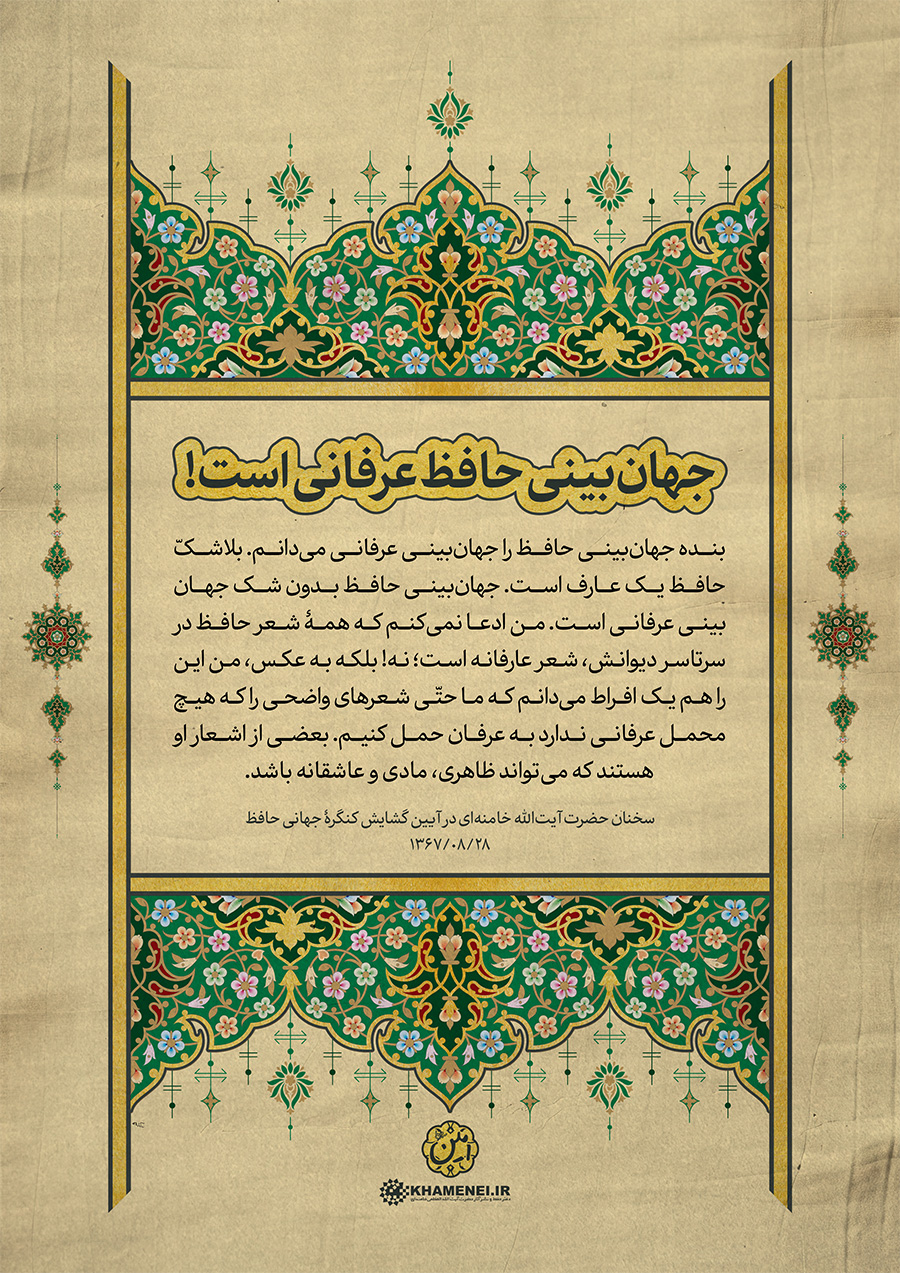 جهان‌بینی حافظ عرفانی است!
بنده جهان‌بینی حافظ را جهان‌بینی عرفانی می‌دانم. بلاشکّ
حافظ یک عارف است. جهان‌بینی حافظ بدون شک جهان
بینی عرفانی است. من ادعا نمی‌کنم که همهٔ شعر حافظ در
سرتاسر دیوانش، شعر عارفانه است؛ نه! بلکه به عکس، من این
را هم یک افراط می‌دانم که ما حتّی شعرهای واضحی را که هیچ
محمل عرفانی ندارد به عرفان حمل کنیم. بعضی از اشعار او
هستند که می‌تواند ظاهری، مادی و عاشقانه باشد.
سخنان حضرت آیت‌الله خامنه‌ای در آیین گشایش کنگرهٔ جهانی حافظ
۱۳۶۷/۰۸/۲۸
KHAMENEI.IR